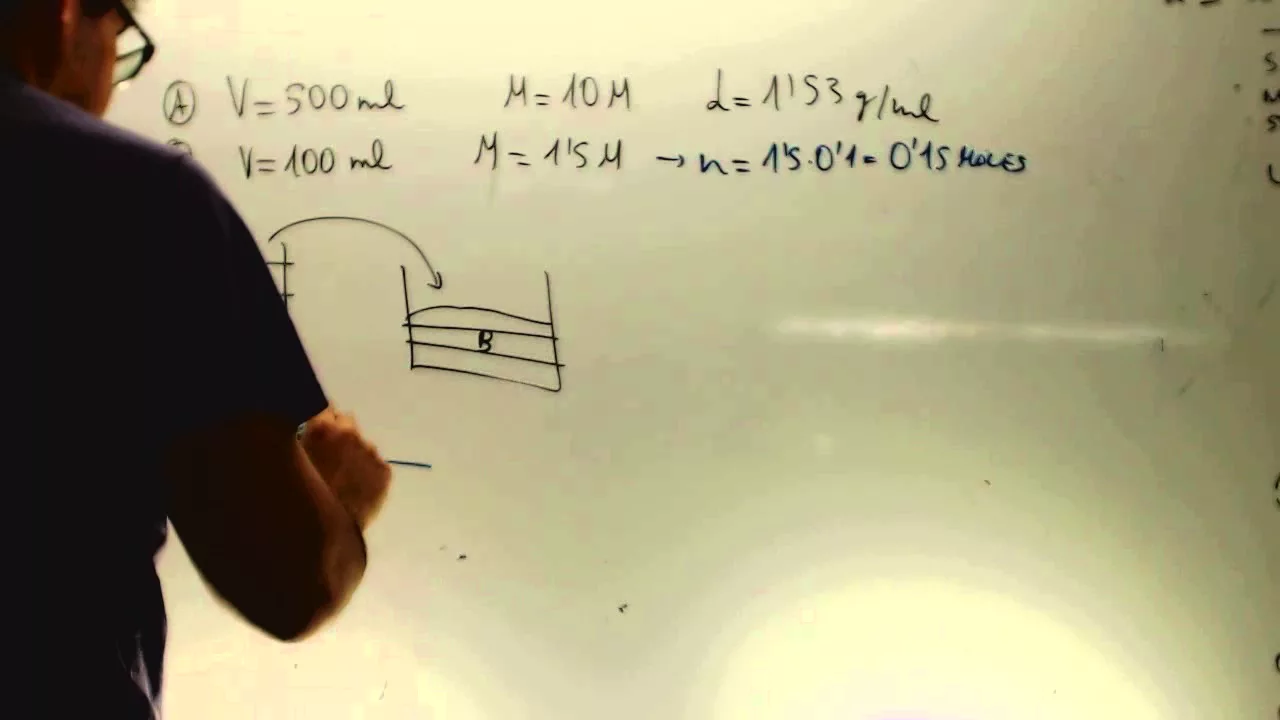 Ⓐ V=500ml M=10M d=1'53g/ml
V=100 ml M=1'5M → n=1'5·0'1=0'15 MOLES
B